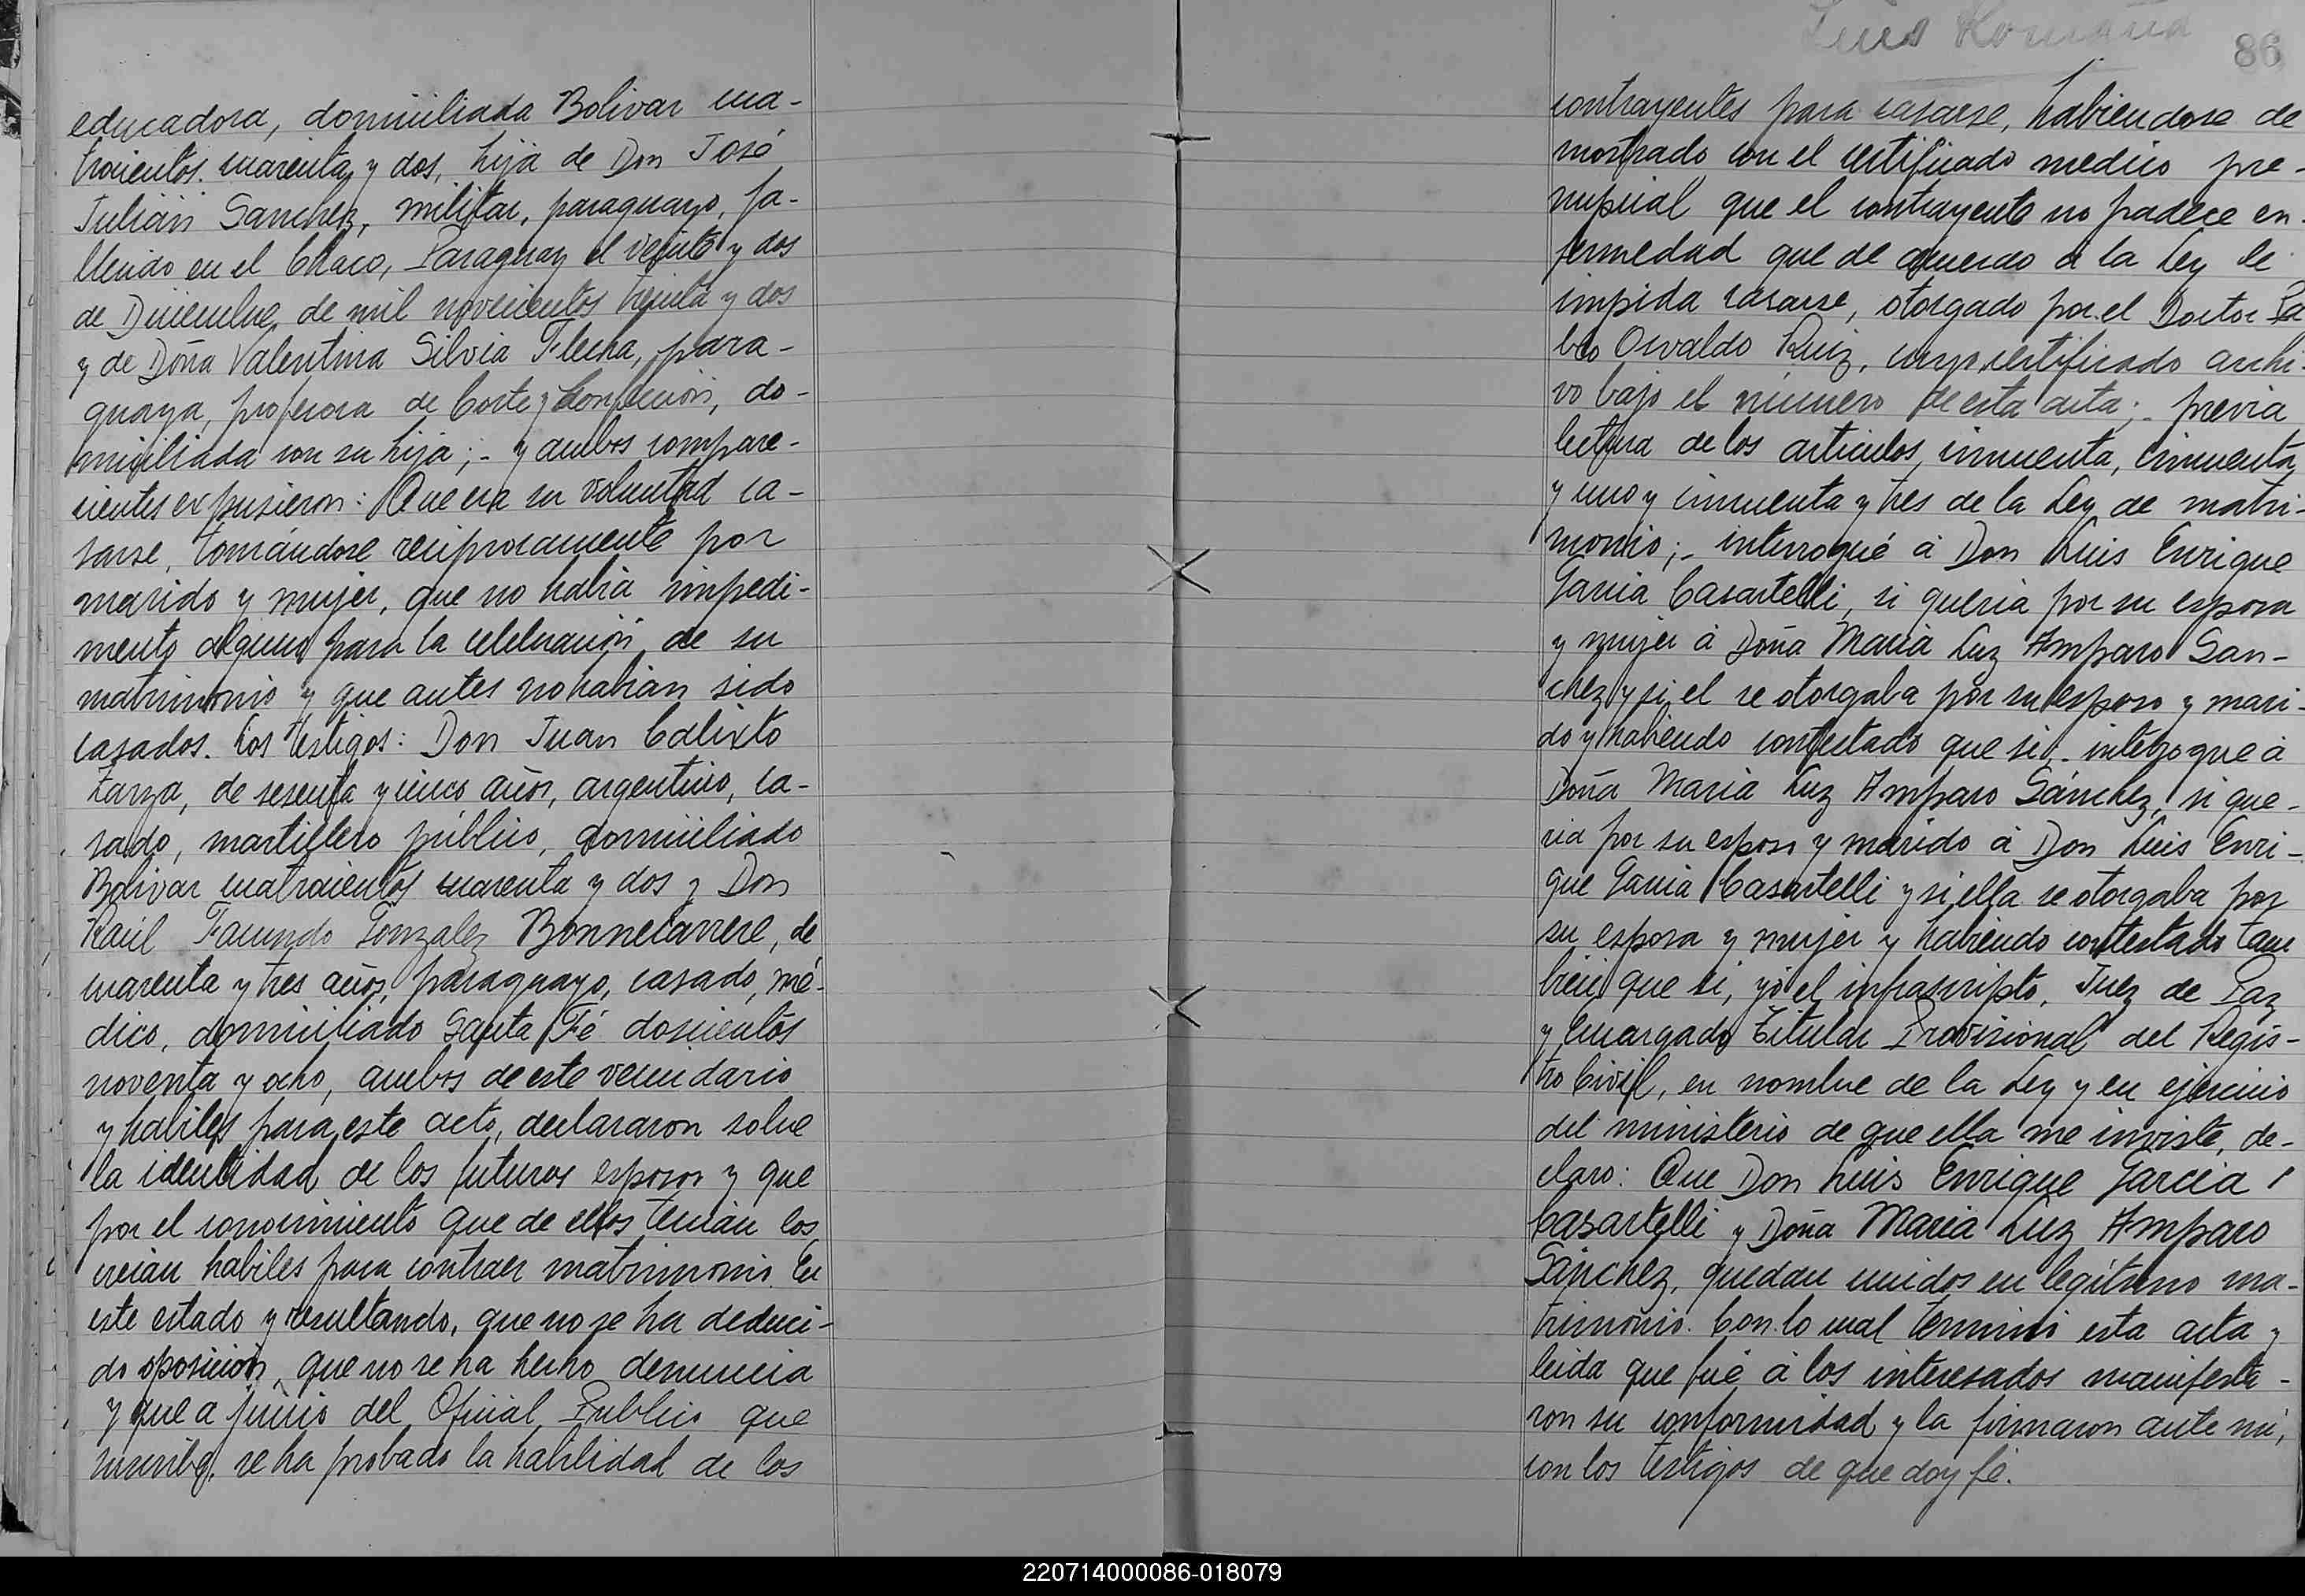 educadora, domiciliada Bolivar cua-
trocientos cuarenta y dos, hija de Don José
Julián Sanchez, militar, paraguayo, fa-
llecido en el Chaco, Paraguay el veinte y dos
de Diciembre de mil novecientos treinta y dos
y de Doña Valentina Silvia Flecha, para-
guaya, profesora de Corte y Confección, do-
miciliada con su hija;- y ambos compare-
cientes expusieron: Que era su voluntad ca-
sarse, tomándose reciprocamente por
marido y mujer, que no habia impedi-
mento alguno para la celebración de su
matrimonio y que antes no habian sido
casados. Los testigos: Don Juan Calixto
Zarza, de sesenta y cinco años, argentino, ca-
sado, martillero público, domiciliado
Bolivar cuatrocientos cuarenta y dos y Don
Raúl Facundo Gonzalez Bonnecarrere, de
cuarenta y tres años, paraguayo, casado, mé-
dico, domiciliado Santa Fé doscientos
noventa y ocho, ambos de este vecindario
y habiles para este acto, declararon sobre
la identidad de los futuros esposos y que
por el conocimiento que de ellos tenian los
creian habiles para contraer matrimonio. En
este estado y resultando, que no se ha deduci-
do oposición, que no se ha hecho denuncia
y que a juicio del Oficial Publico que
suscribe, se ha probado la habilidad de los
Luis Romaña
86
contrayentes para casarse, habiendose de
mostrado con el certificado medico pre-
nupcial que el contrayente no padece en-
fermedad que de acuerdo á la Ley le
impida casarse, otorgado por el Doctor Pa
blo Osvaldo Ruiz, cuyo certificado archi-
vo bajo el número de esta acta;- previa
lectura de los articulos, cincuenta, cincuenta
y uno y cincuenta y tres de la Ley de matri-
monio;- interrogué á Don Luis Enrique
Garcia Casartelli, si queria por su esposa
y mujer á Doña Maria Luz Amparo San-
chez y si el se otorgaba por su esposo y mari-
do y habiendo contestado que si;- interrogue á
Doña Maria Luz Amparo Sánchez, si que-
ria por su esposo y marido á Don Luis Enri-
que Garcia Casartelli y si ella se otorgaba por
su esposa y mujer y habiendo contestado tam
bien que si, yo el infrascripto, Juez de Paz
y Encargado Titular Provisional del Regis-
tro Civil, en nombre de la Ley y en ejercicio
del ministerio de que ella me inviste, de-
claro: Que Don Luis Enrique Garcia
Casartelli y Doña Maria Luz Amparo
Sánchez, quedan unidos en legítimo ma-
trimonio. Con lo cual terminó esta acta y
leida que fué á los interesados manifesta-
ron su conformidad y la firmaron ante mi,
con los testigos de que doy fé.
220714000086-018079